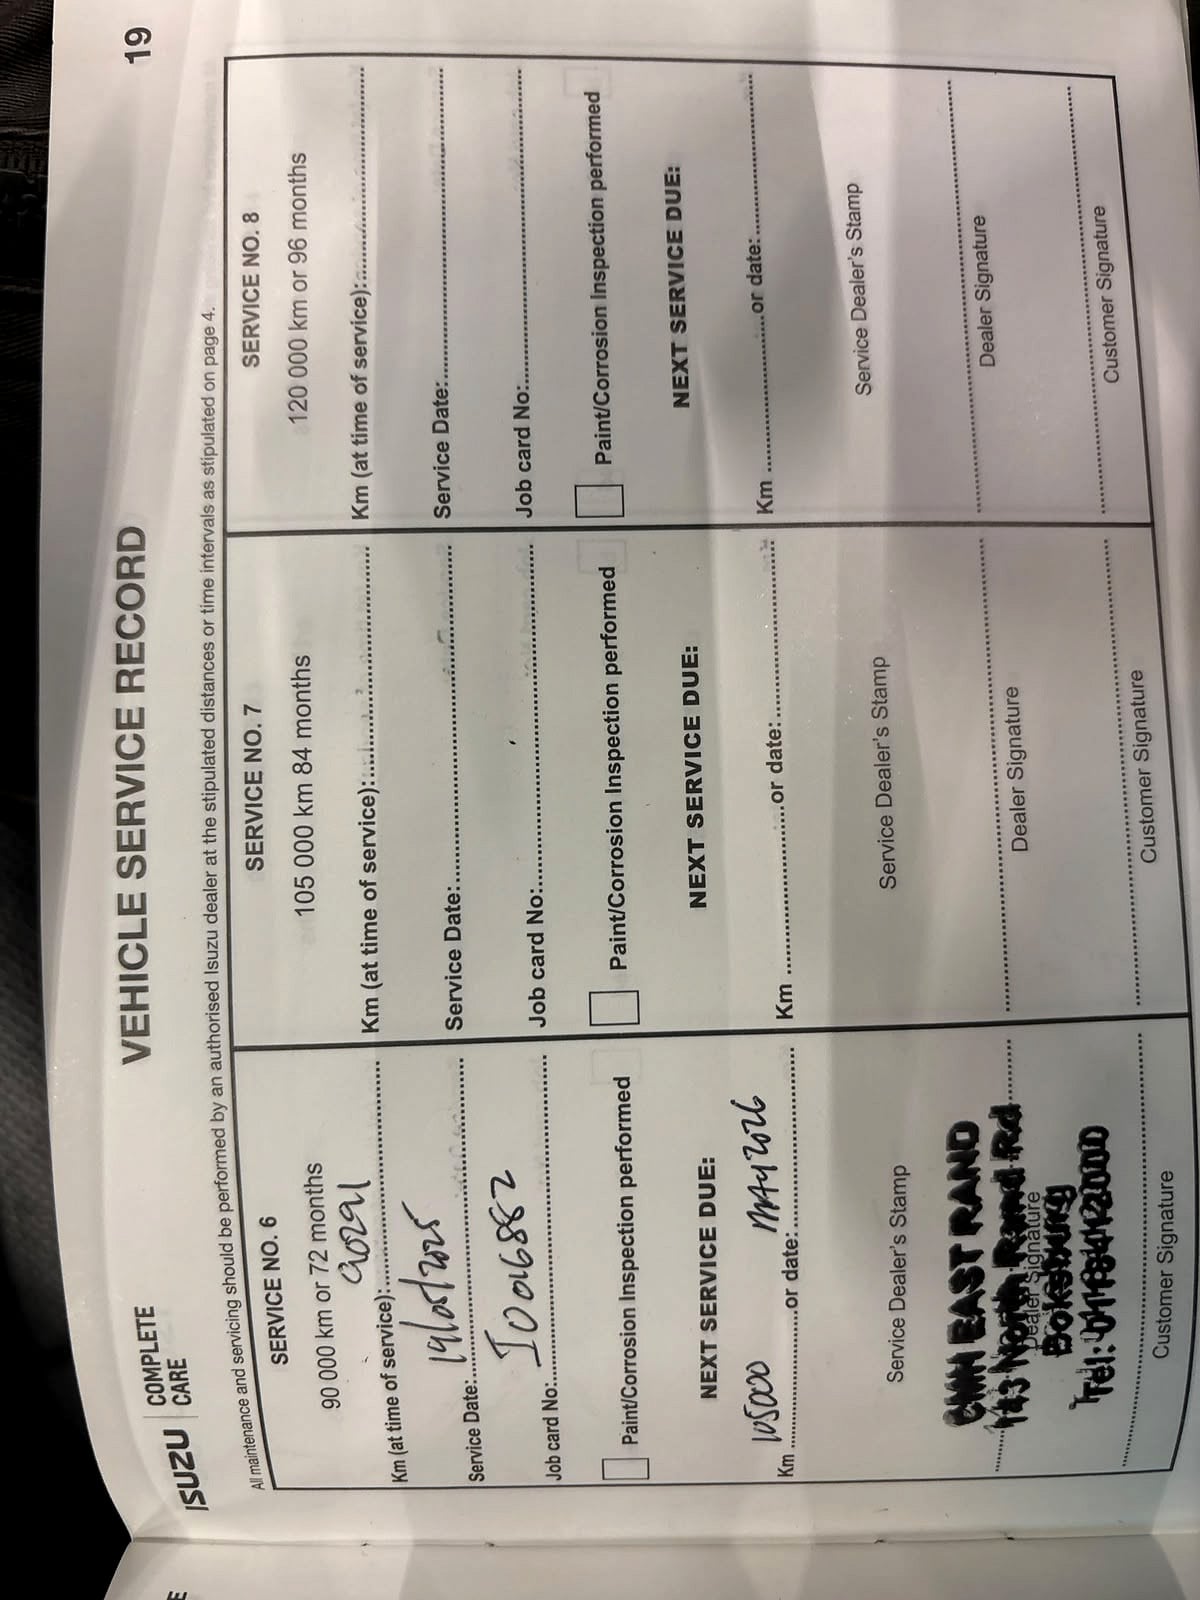 ISUZU
COMPLETE
CARE
VEHICLE SERVICE RECORD
19
All maintenance and servicing should be performed by an authorised Isuzu dealer at the stipulated distances or time intervals as stipulated on page 4.
SERVICE NO. 6
90 000 km or 72 months
Km (at time of service): 90291
Service Date: 19/05/2025
Job card No: I0016882
Paint/Corrosion Inspection performed
NEXT SERVICE DUE:
Km 105000 or date: MAY 2026
Service Dealer's Stamp
CMH EAST RAND
North Rand Rd
Dealer Signature
Boksburg
Customer Signature
SERVICE NO. 7
105 000 km 84 months
Km (at time of service):
Service Date:
Job card No:
Paint/Corrosion Inspection performed
NEXT SERVICE DUE:
Km or date:
Service Dealer's Stamp
Dealer Signature
Customer Signature
SERVICE NO. 8
120 000 km or 96 months
Km (at time of service):
Service Date:
Job card No:
Paint/Corrosion Inspection performed
NEXT SERVICE DUE:
Km or date:
Service Dealer's Stamp
Dealer Signature
Customer Signature